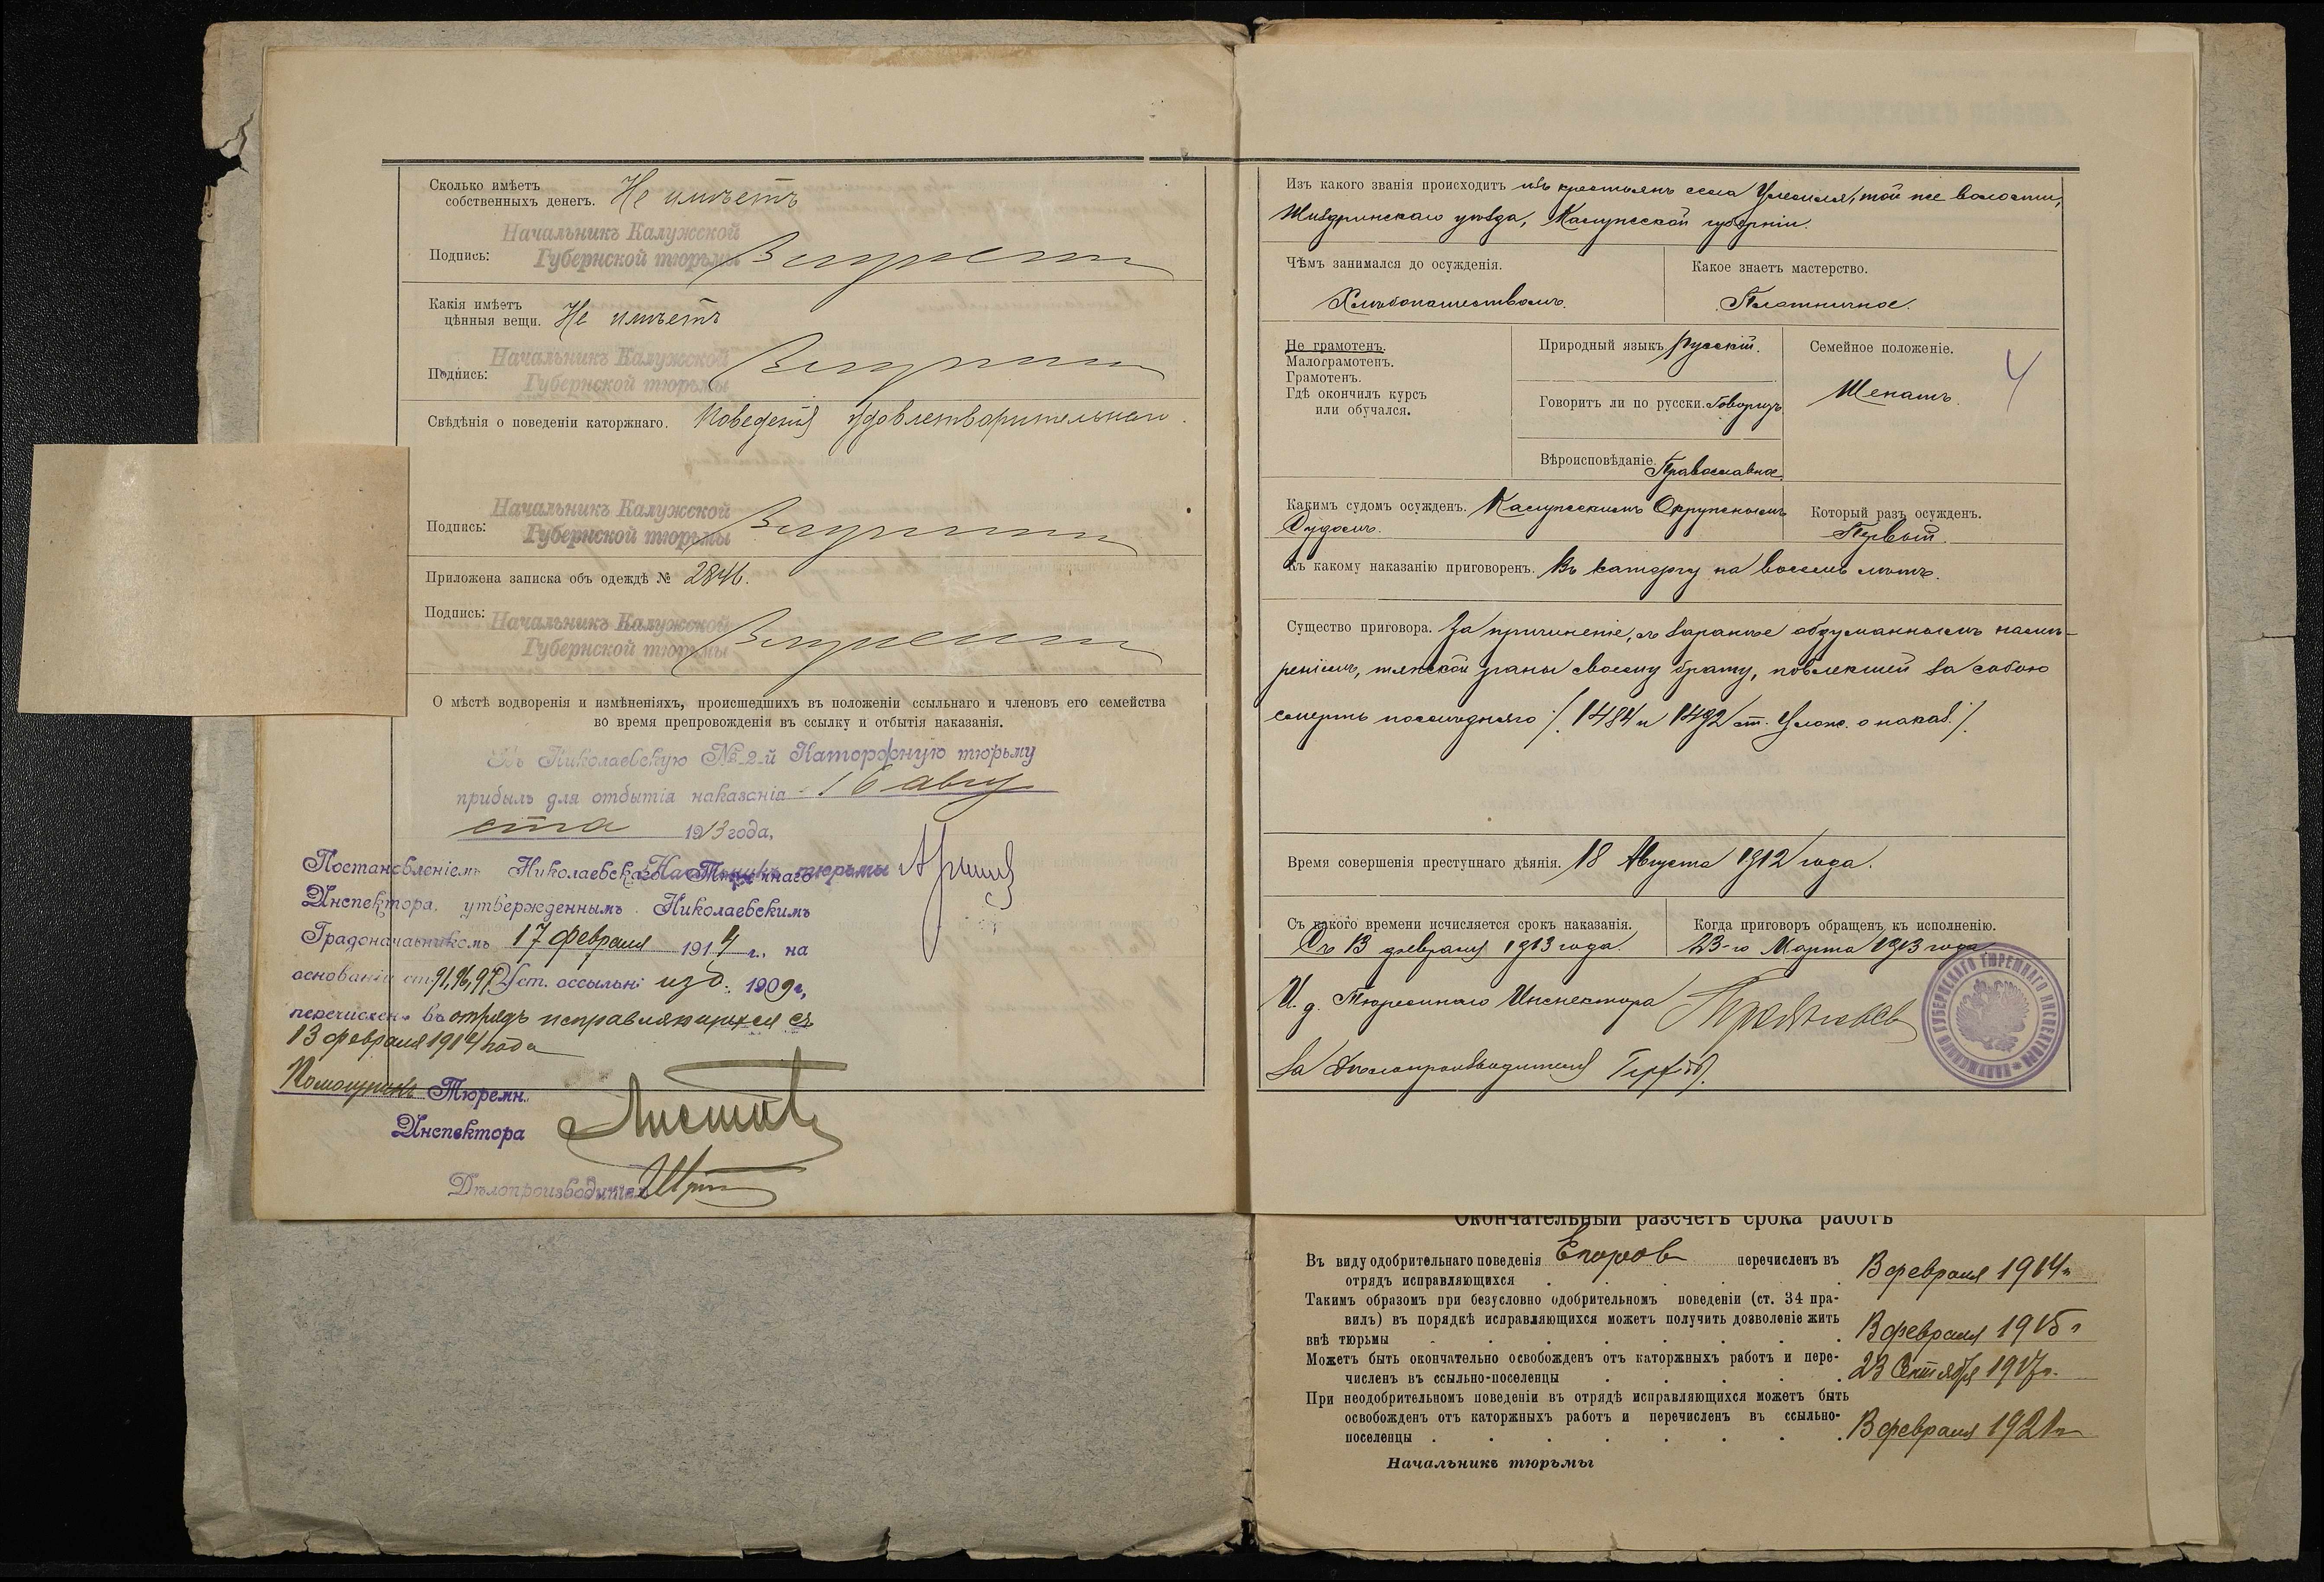 Сколько имѣетъ
собственныхъ денегъ. Не имѣетъ
Начальникъ Калужской
Подпись: Губернской тюрьмы
Какія имѣетъ
цѣнныя вещи. Не имѣетъ
Начальникъ Калужской
Подпись: Губернской тюрьмы
Свѣдѣнія о поведеніи каторжнаго. Поведенія удовлетворительнаго.
Начальникъ Калужской
Подпись: Губернской тюрьмы
Приложена записка объ одеждѣ № 2846.
Подпись: Начальникъ Калужской
Губернской тюрьмы
О мѣстѣ водворенія и измѣненіяхъ, происшедшихъ въ положеніи ссыльнаго и членовъ его семейства
во время препровожденія въ ссылку и отбытія наказанія.
Въ Николаевскую № 2-й Каторжную тюрьму
прибылъ для отбытія наказанія 16 авгу
ста 1913 года,
Начальникъ тюрьмы
Постановленіемъ Николаевскаго Тюремнаго
Инспектора, утвержденнымъ Николаевскимъ
Градоначальникомъ 17 февраля 1914 г., на
основаніи ст. 91, 96, 97 Уст. ссыльн. изд. 1909 г.,
перечисленъ въ отрядъ исправляющихся съ
13 февраля 1914 года
Помощникъ Тюремн.
Инспектора
Дѣлопроизводитель
Изъ какого званія происходитъ изъ крестьянъ села, той же волости,
Жиздринскаго уѣзда, Калужской губерніи.
Чѣмъ занимался до осужденія.
Хлѣбопашествомъ.
Какое знаетъ мастерство.
Плотничное.
Не грамотенъ.
Малограмотенъ.
Грамотенъ.
Гдѣ окончилъ курсъ
или обучался.
Природный языкъ Русскій.
Говоритъ ли по русски. Говоритъ
Вѣроисповѣданіе. Православное.
Семейное положеніе.
Женатъ.
4
Какимъ судомъ осужденъ. Калужскимъ Окружнымъ
Судомъ.
Который разъ осужденъ.
Первый.
Къ какому наказанію приговоренъ. Въ каторгу на восемь лѣтъ.
Существо приговора. За причиненіе, съ заранѣе обдуманнымъ намѣ-
реніемъ, тяжкой раны своему брату, повлекшей за собою
смерть послѣдняго /. 1484 и 1492 ст. Улож. о наказ. /.
Время совершенія преступнаго дѣянія. 18 Августа 1912 года.
Съ какого времени исчисляется срокъ наказанія.
Съ 13 февраля 1913 года.
Когда приговоръ обращенъ къ исполненію.
23-го Марта 1913 года
И. д. Тюремнаго Инспектора
За Дѣлопроизводителя
КАЛУЖСКАГО ГУБЕРНСКАГО ТЮРЕМНАГО ИНСПЕКТОРА
Окончательный разсчетъ срока работъ
Въ виду одобрительнаго поведенія Егоровъ перечисленъ въ
отрядъ исправляющихся 13 февраля 1914 г.
Такимъ образомъ при безусловно одобрительномъ поведеніи (ст. 34 пра-
вилъ) въ порядкѣ исправляющихся можетъ получить дозволеніе жить
внѣ тюрьмы 13 февраля 1915 г.
Можетъ быть окончательно освобожденъ отъ каторжныхъ работъ и пере-
численъ въ ссыльно-поселенцы 23 Октября 1917 г.
При неодобрительномъ поведеніи въ отрядѣ исправляющихся можетъ быть
освобожденъ отъ каторжныхъ работъ и перечисленъ въ ссыльно-
поселенцы 13 февраля 1921 г.
Начальникъ тюрьмы